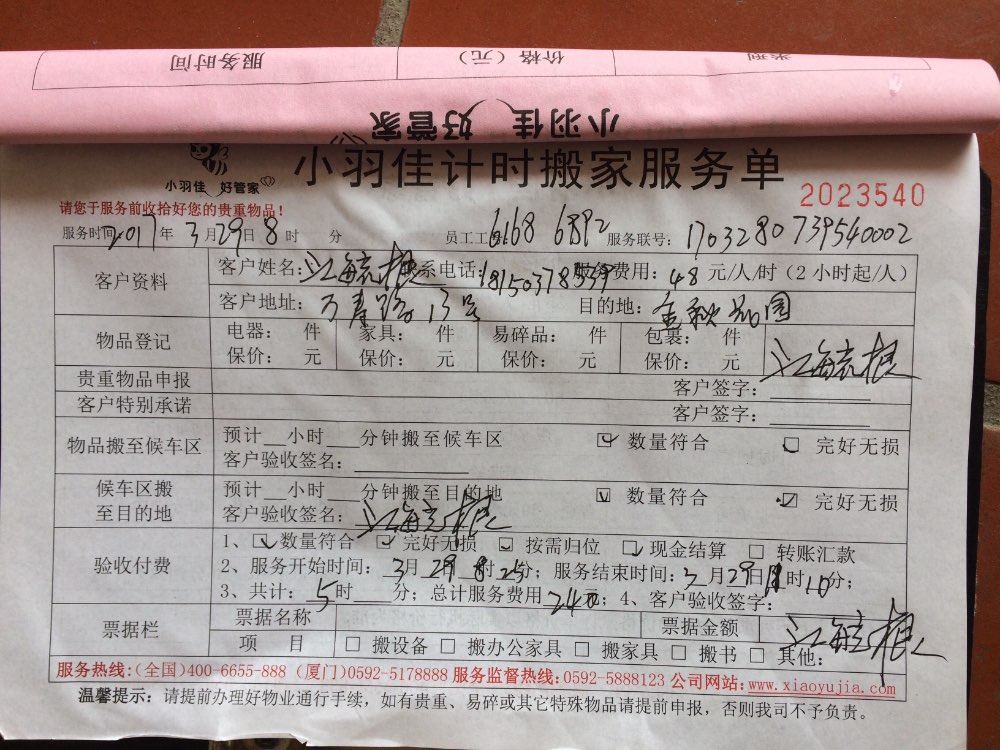 服务时间 价格（元） 类型
小羽佳 好管家
小羽佳 好管家 小羽佳计时搬家服务单
2023540
请您于服务前收拾好您的贵重物品！
服务时间 2017年3月29日8时 分 员工工 6168 6892 服务联号：1703280739540002
客户资料 客户姓名：江毓根 联系电话：18150378539 服务费用：48元/人/时（2小时起/人）
客户地址：万寿路13号 目的地：金秋花园
物品登记 电器： 件 家具： 件 易碎品： 件 包裹： 件
保价： 元 保价： 元 保价： 元 保价： 元 江毓根
贵重物品申报 客户签字：
客户特别承诺 客户签字：
物品搬至候车区 预计 小时 分钟搬至候车区 ☑ 数量符合 ☑ 完好无损
客户验收签名：
候车区搬至目的地 预计 小时 分钟搬至目的地 ☑ 数量符合 ☑ 完好无损
客户验收签名：江毓根
验收付费 1、☑数量符合 ☑完好无损 ☑按需归位 ☑现金结算 □转账汇款
2、服务开始时间：3月29日8时25分；服务结束时间：3月29日 时10分；
3、共计：5时 分；总计服务费用 240；4、客户验收签字：江毓根
票据栏 票据名称 票据金额
项 目 □搬设备 □搬办公家具 □搬家具 □搬书 □其他：
服务热线:(全国)400-6655-888 (厦门)0592-5178888 服务监督热线:0592-5888123 公司网站:www.xiaoyujia.com
温馨提示：请提前办理好物业通行手续，如有贵重、易碎或其它特殊物品请提前申报，否则我司不予负责。